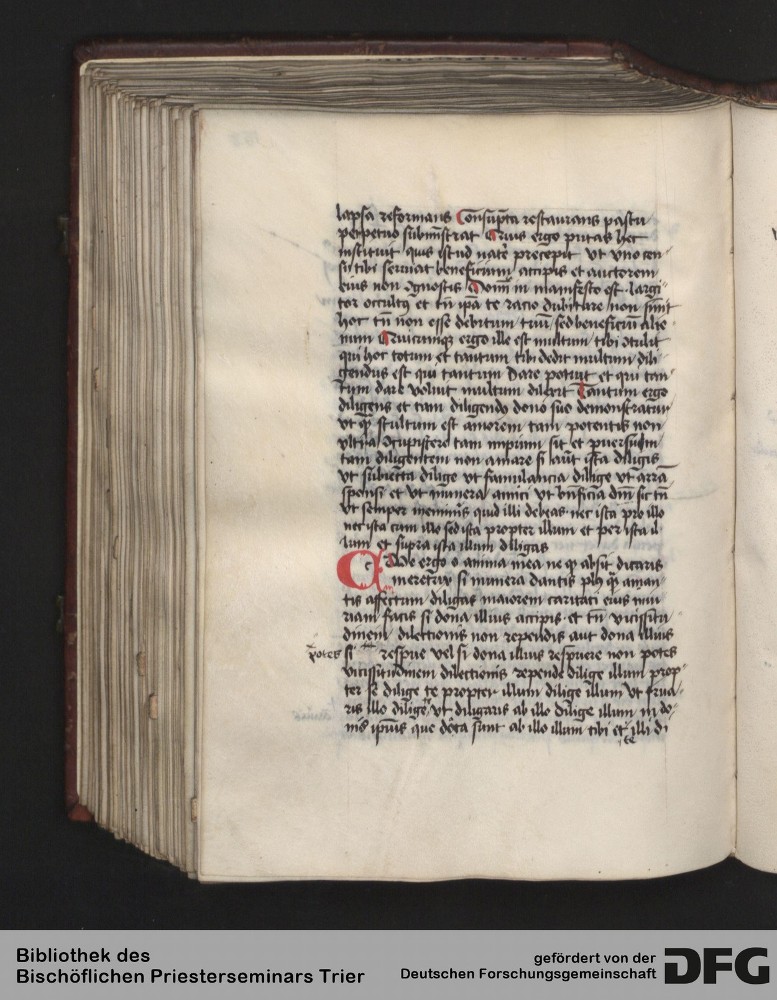 lapsa reformans Consūpta restaurans pastu
perpetuo subministrat Cuius ergo putas hec
instituit quis istud natē precepit vt vno cen
su tibi seruiat beneficium accipis et auctorem
eius non ignoscis Donū in manifesto est largi
tor occultus et tn̄ ip̄a te racio dubitare non sinit
hoc tn̄ non esse debitum tuū sed beneficiū alie
num Quicumque ergo ille est multum tibi ɔtulit
qui hoc totum et tantum tibi dedit multum dili
gendus est qui tantum dare potuit et qui tan
tum dare voluit multum dilexit Tantum ergo
diligens et tam diligendo dono suo demonstratur
vt stultum est amorem tam potentis non
vltra ɔcupiscere tam impium sit et puersum
tam diligentem non amare si aūt ista diligis
vt subiecta dilige vt famulancia dilige vt arra
sponsi et vt munera amici vt bn̄ficia dn̄i sic tn̄
vt semper memineris quid illi debeas nec ista pro illo
nec ista cum illo sed ista propter illum et per ista il
lum et supra ista illum diligas
Caue ergo o anima mea ne qd absit dicaris
meretrix si munera dantis plus qm aman
tis affectum diligas maiorem caritati eius iniu
riam facis si dona illius accipis et tn̄ vicissitu
dinem dilectionis non rependis aut dona illius
potes si respue vel si dona illius respuere non potes
vicissitudinem dilectionis repende dilige illum prop
ter se dilige te propter illum dilige illum vt frua
ris illo dilige vt diligaris ab illo dilige illum in do
nis ipsius que data sunt ab illo illum tibi et illi di
te
Bibliothek des
Bischöflichen Priesterseminars Trier
gefördert von der
Deutschen Forschungsgemeinschaft
DFG